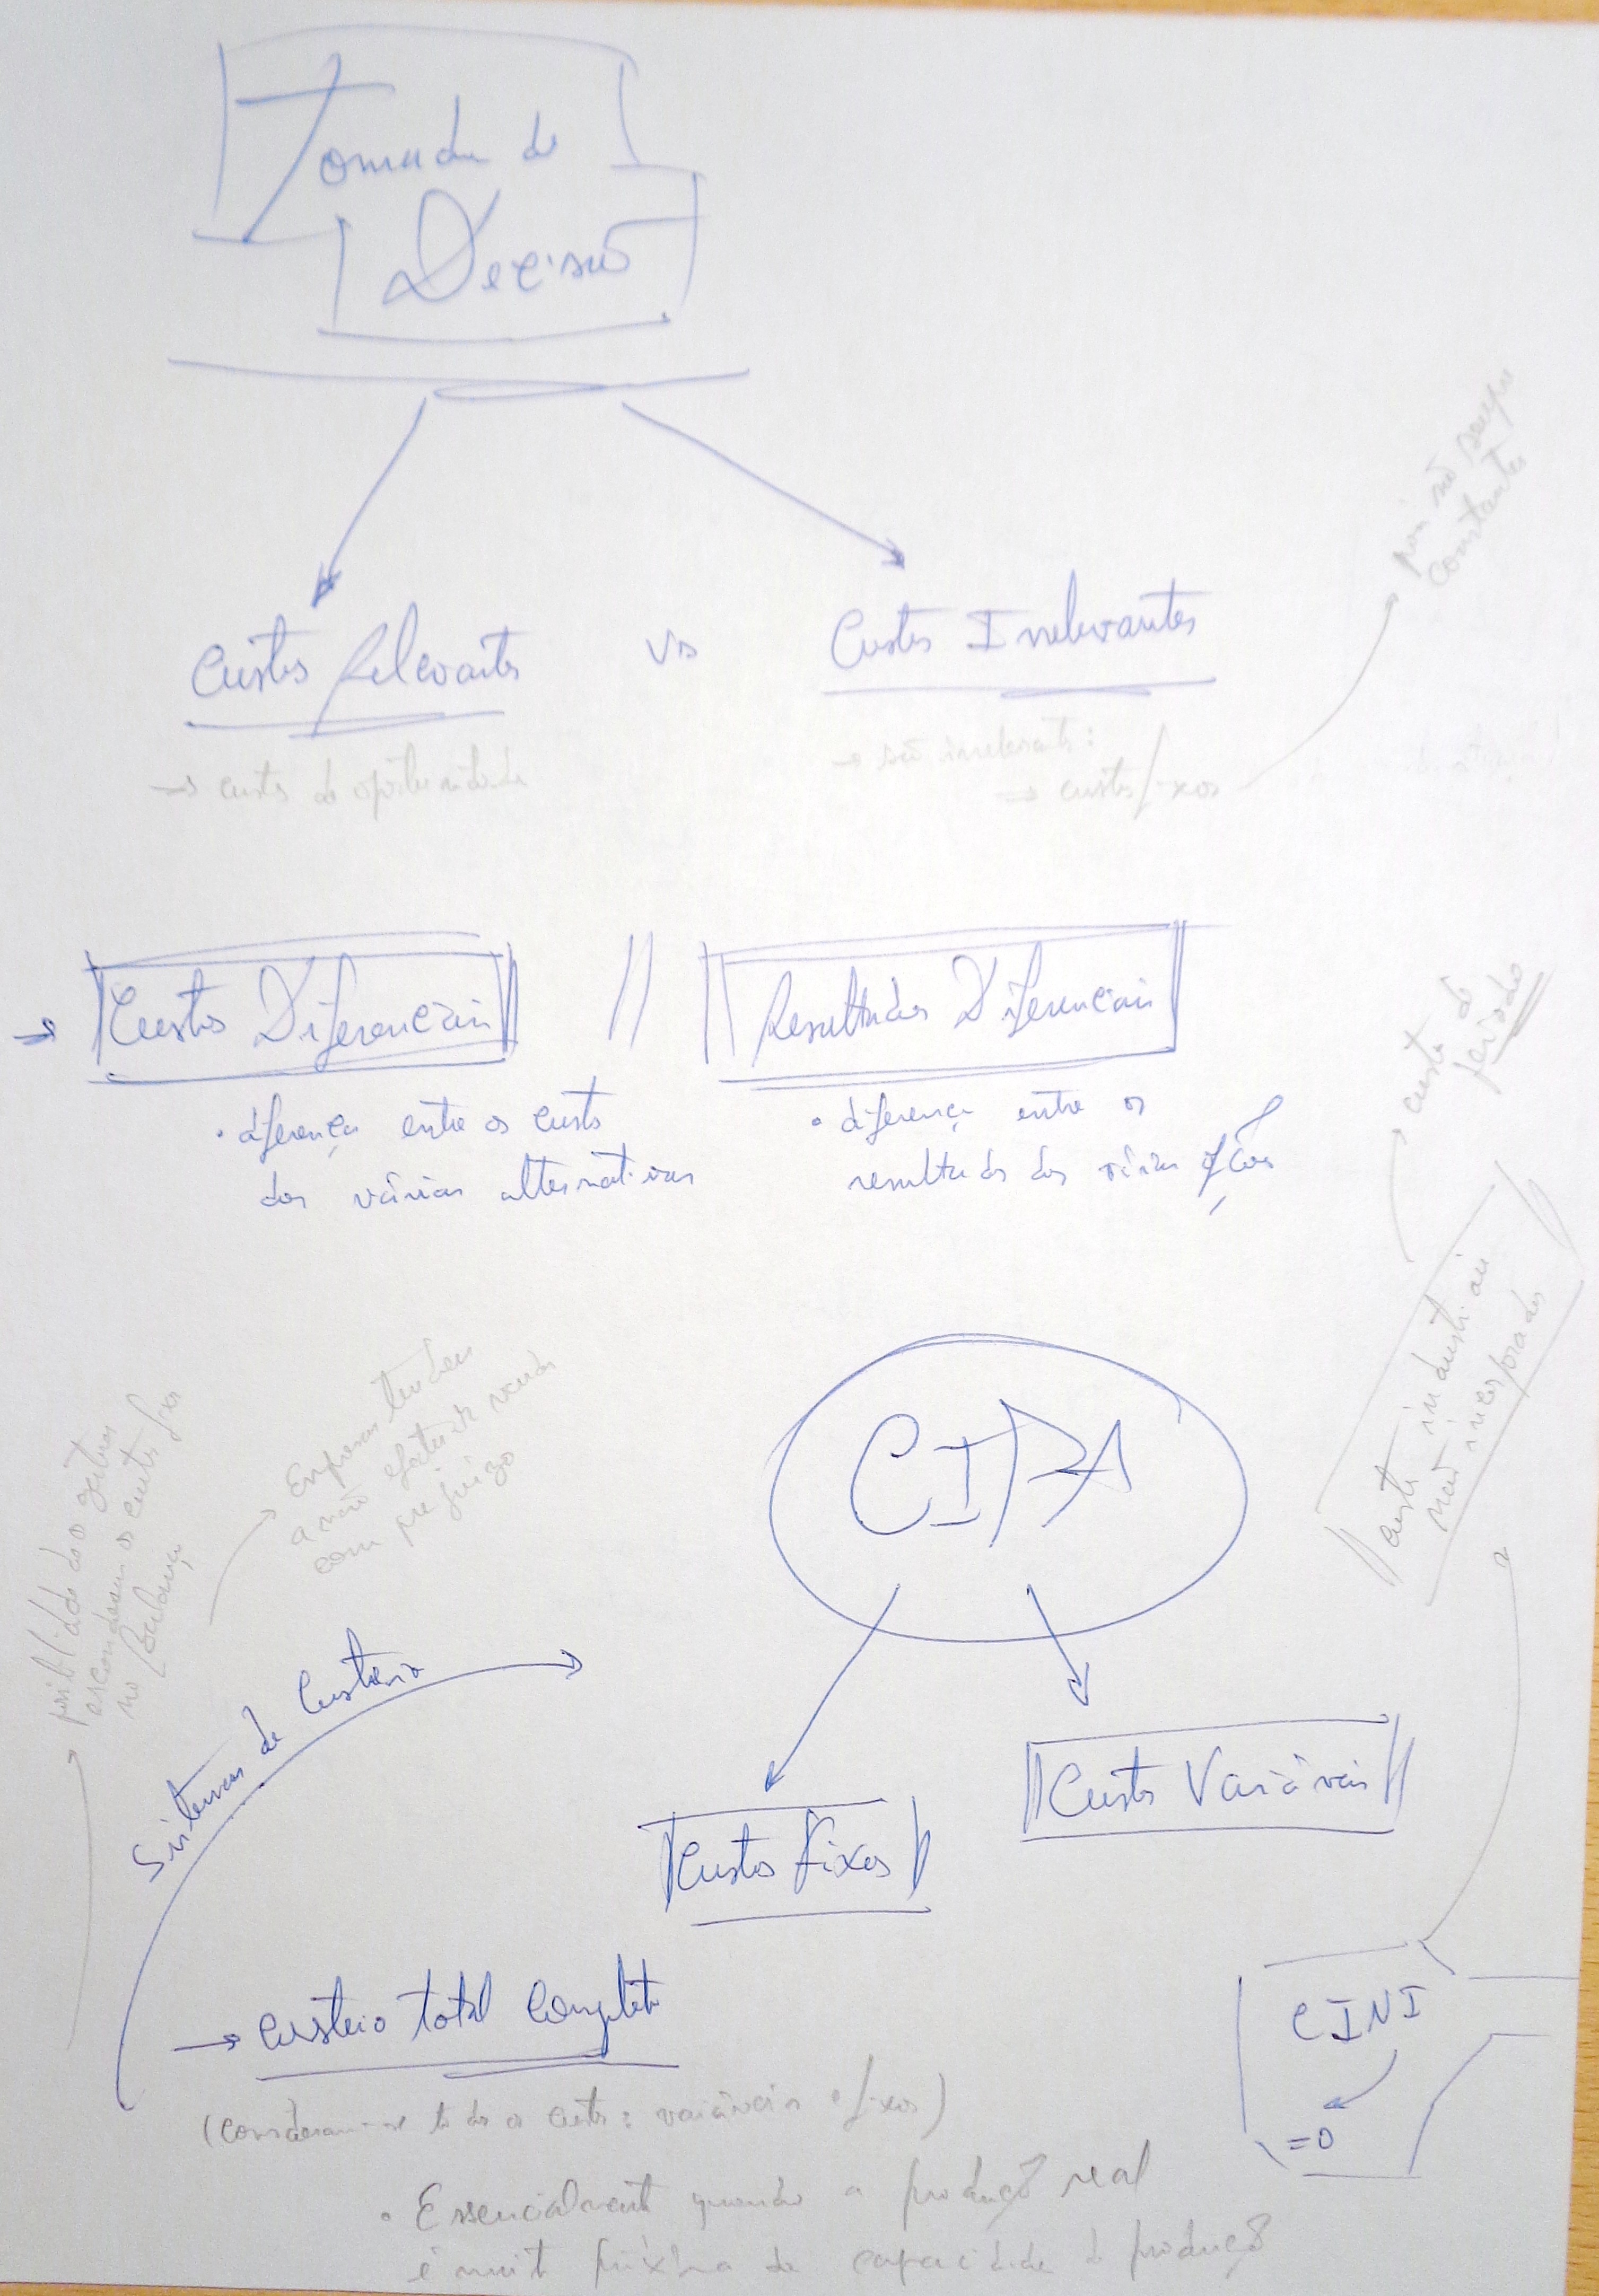 Tomada de
Decisão
Custos Relevantes vs Custos Irrelevantes
→ custos de oportunidade
→ são irrelevantes:
→ custos fixos
pois são sempre
constantes
→ Custos Diferenciais // Resultados Diferenciais
• diferença entre os custos
das várias alternativas
• diferença entre os
resultados das várias opções
custo do
período
custos industriais
não incorporados
CIPA
Empresas tendem
a não efectuar vendas
com prejuízo
possibilidade dos gestores
esconderem os custos fixos
no Balanço
Sistemas de Custeio
Custos Fixos
Custos Variáveis
→ Custeio total Completo
(consideram-se todos os custos: variáveis e fixos)
• Essencialmente quando a produção real
é muito próxima da capacidade de produção
CINI
=0